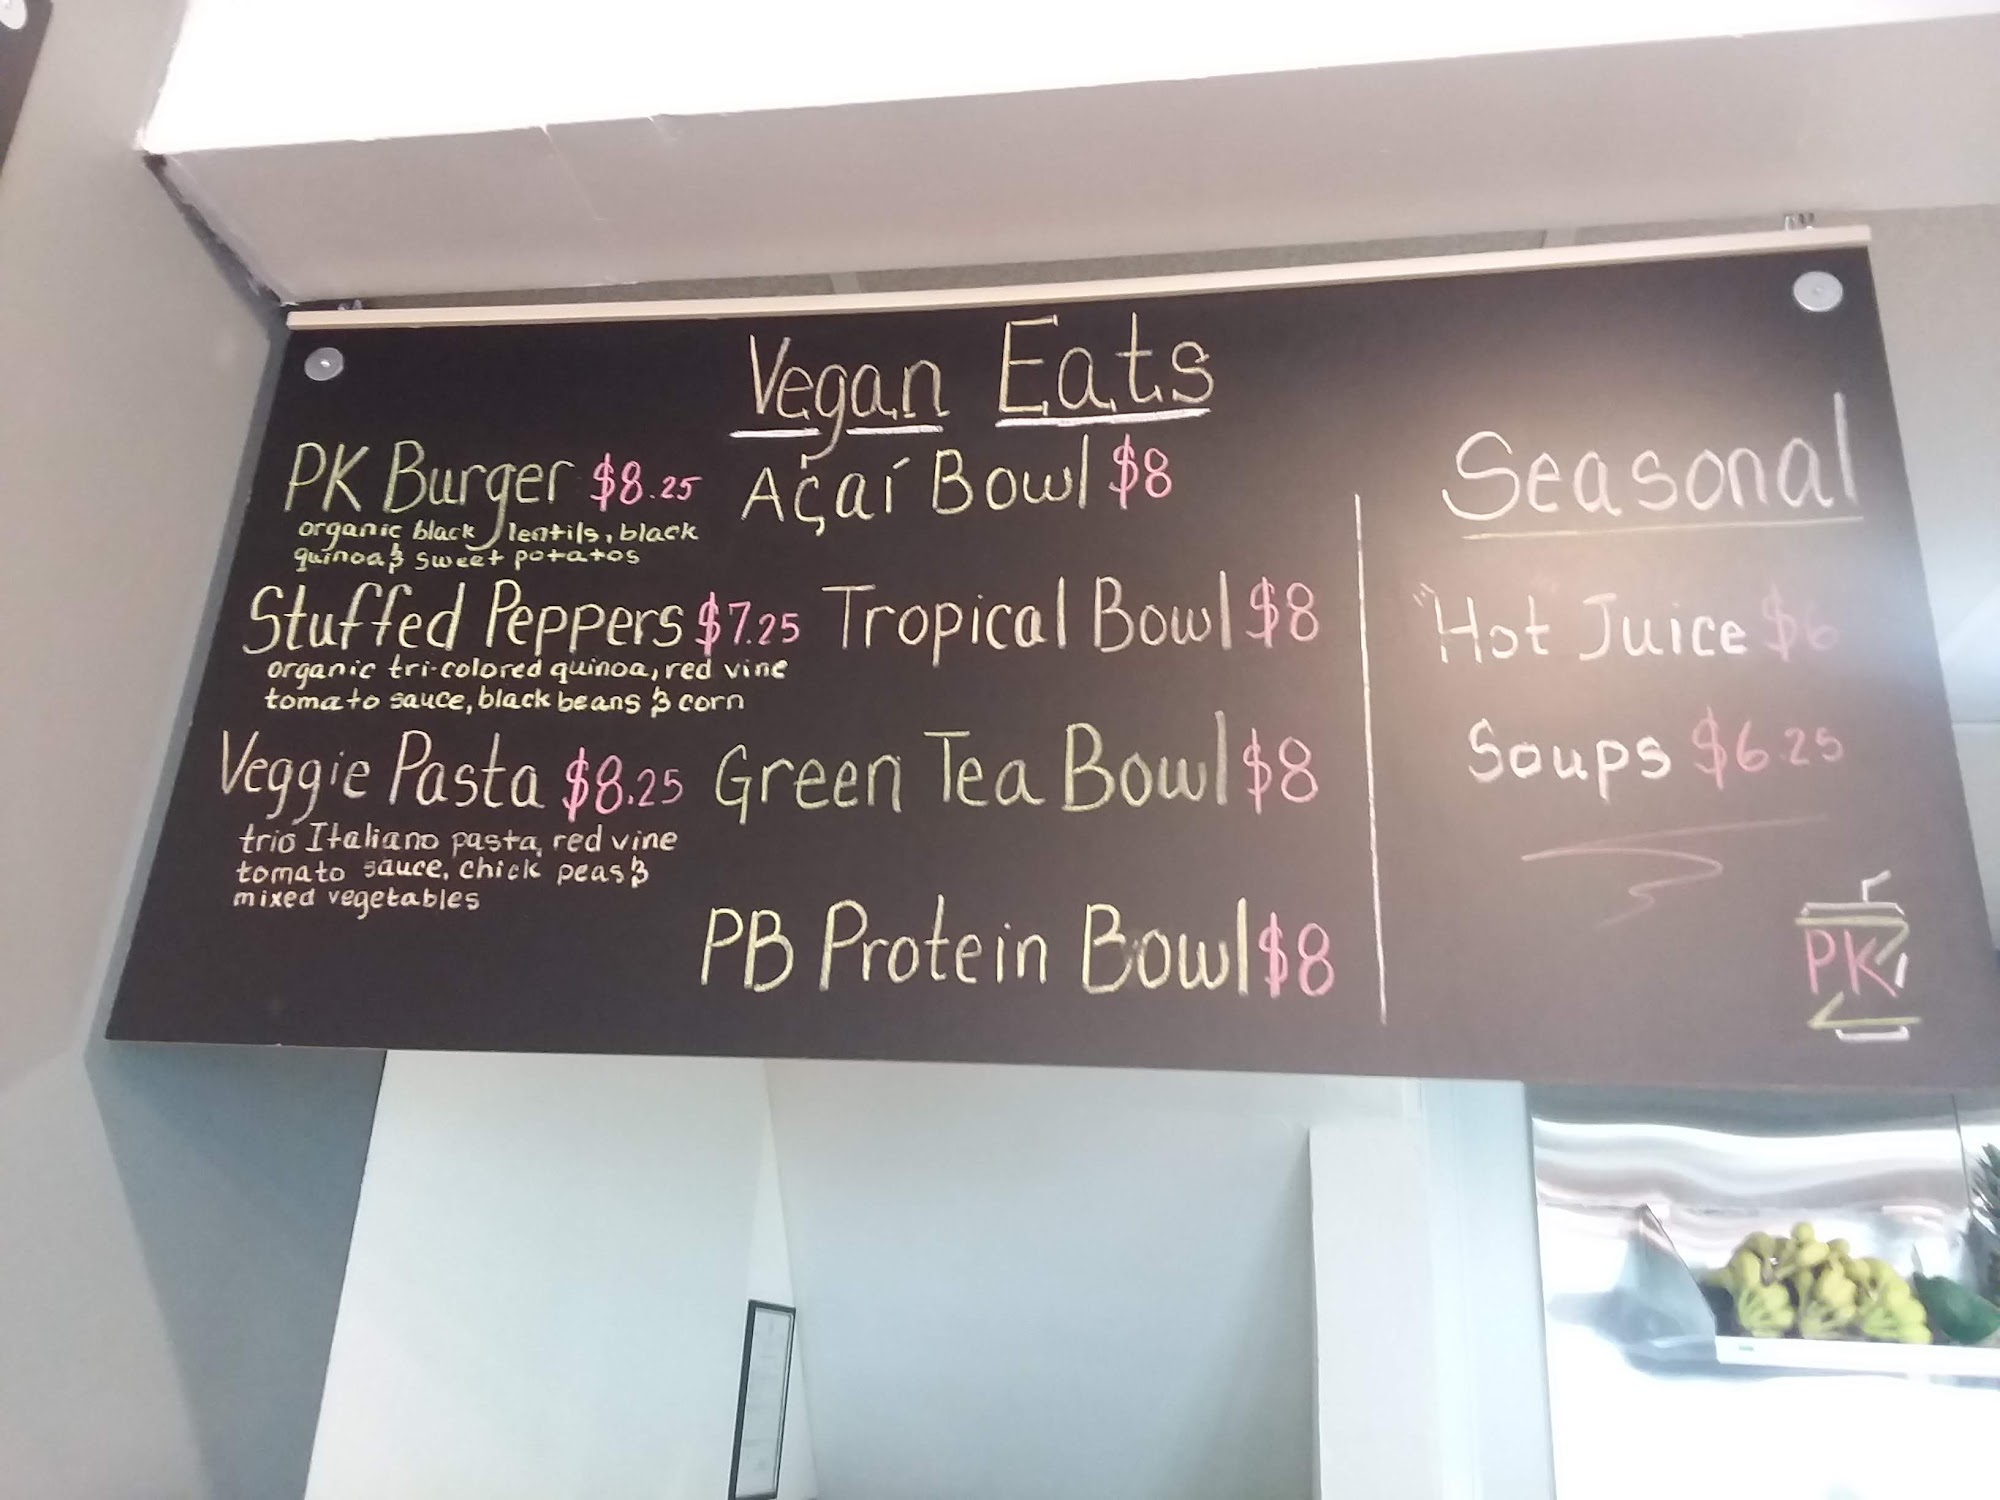 Vegan Eats
PK Burger $8.25
organic black lentils, black
quinoa & sweet potatos
Stuffed Peppers $7.25
organic tri-colored quinoa, red vine
tomato sauce, black beans & corn
Veggie Pasta $8.25
trio Italiano pasta, red vine
tomato sauce, chick peas &
mixed vegetables
Açaí Bowl $8
Tropical Bowl $8
Green Tea Bowl $8
PB Protein Bowl $8
Seasonal
"Hot Juice $6
Soups $6.25
PK